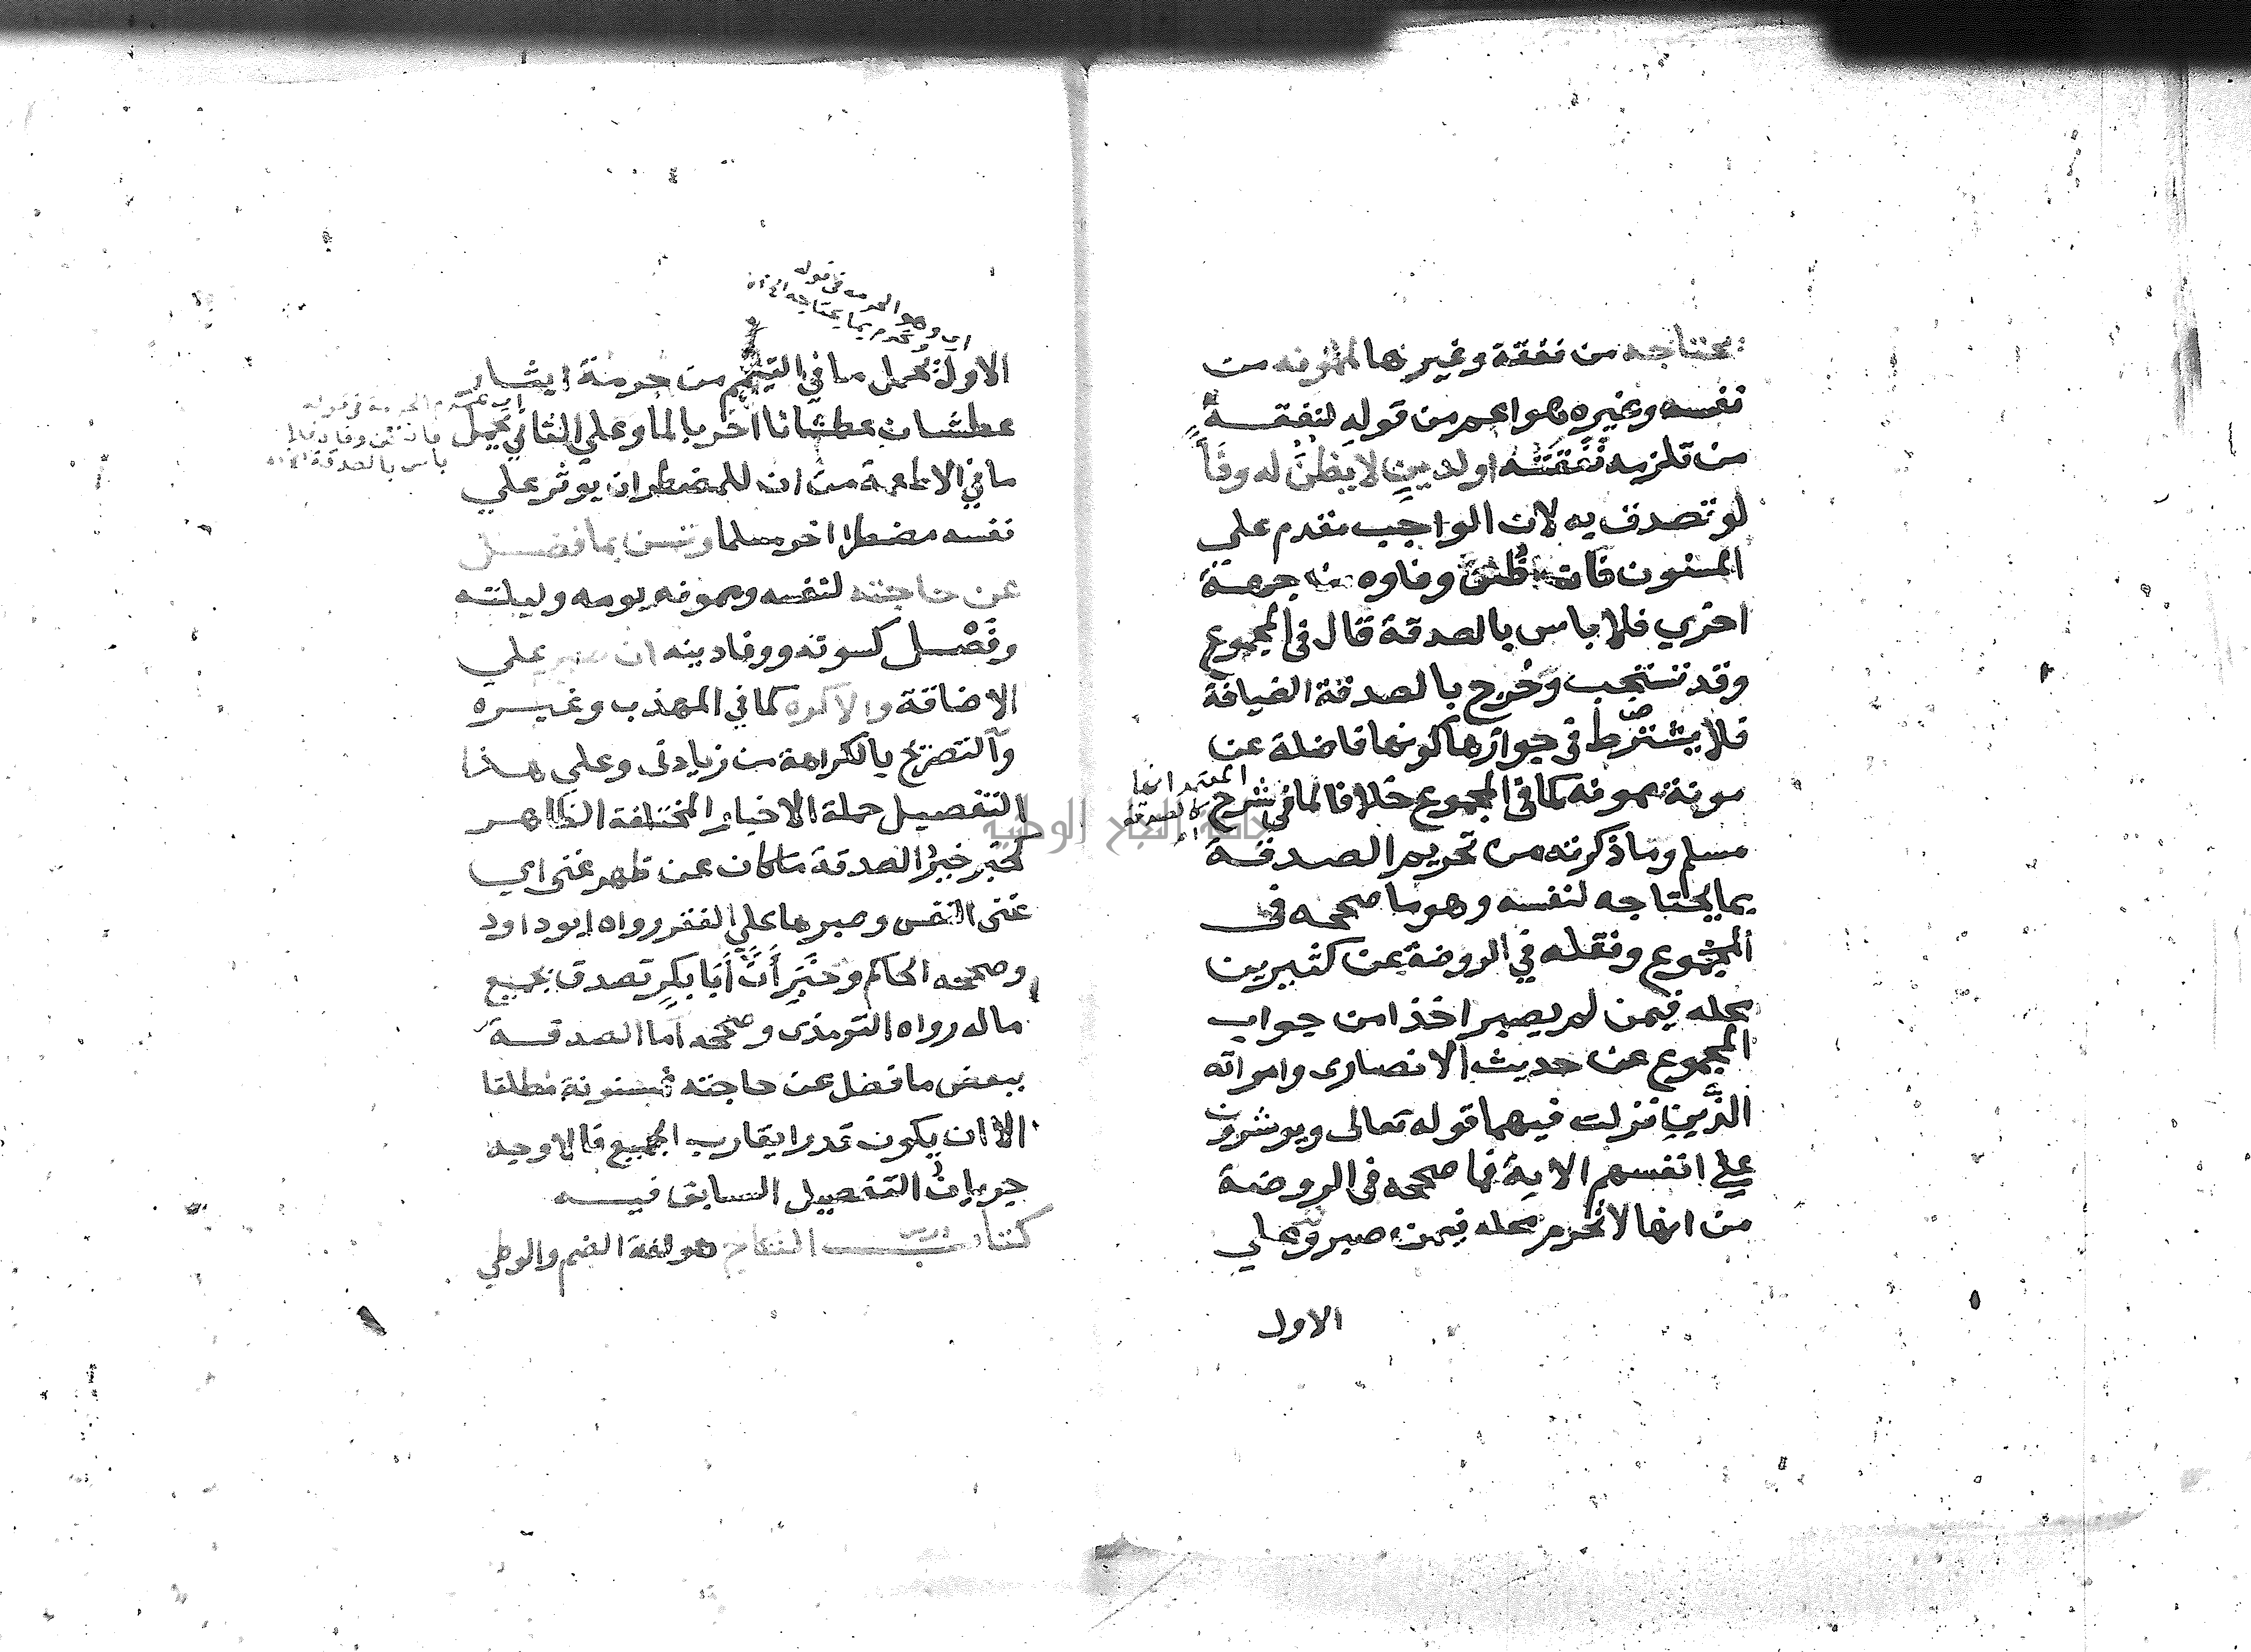 يحتاجه من نفقة وغيرها لممونه من
نفسه وغيره هو اعم من قوله لنفقة
من تلزمه نفقته او لدين لا يظن له وفا
لو تصدق به لان الواجب مقدم علي
المسنون فان ظن وفاوه من جهة
اخري فلا باس بالصدقة قال في المجموع
وقد تستحب وخرج بالصدقة الضيافة
فلا يشترط في جوازها كونها فاضلة عن
مونة ممونه كما في المجموع خلافا لما في شرح
المعتمد انها
كالصدقة
مسلم وما ذكرته من تحريم الصدقة
بما يحتاجه لنفسه وهو ما صححه في
المجموع ونقله في الروضة عن كثيرين
محله فيمن لم يصبر اخذا من جواب
المجموع عن حديث الانصاري وامراته
الذين نزلت فيهما قوله تعالى ويوثرون
علي انفسهم الاية فما صححه في الروضة
من انها لا تحرم محله فيمن صبر وعلي
الاول
اي وهو الحرمة في قوله
وتحرم بما يحتاجه الخ
الاول يحمل ما في التيمم من حرمة ايثار
عطشان عطشانا اخر بالما وعلي الثاني يحمل
اي عدم الحرمة في قوله
فان ظن وفا فلا
باس بالصدقة
ما في الاطعمة من ان للمضطر ان يوثر علي
نفسه مضطرا اخر مسلما وتسن بما فضل
عن حاجته لنفسه وممونه يومه وليلته
وفصل كسوته ووفا دينه ان صبر علي
الاضاقة والا كره كما في المهذب وغيره
والتصريح بالكراهة من زيادتي وعلي هذا
التفصيل حملة الاخبار المختلفة الظاهر
كخبر خير الصدقة ما كان عن ظهر غني اي
غني النفس وصبرها علي الفقر رواه ابو داود
وصححه الحاكم وخبر أن أبا بكر تصدق بجميع
ماله رواه الترمذي وصححه اما الصدقة
ببعض ما فضل عن حاجته فمسنونة مطلقا
الا ان يكون قدرا يقارب الجميع فالاوجه
جريان التفصيل السابق فيه
كتاب النكاح هو لغة الضم والوطي
جامعة النجاح الوطنية